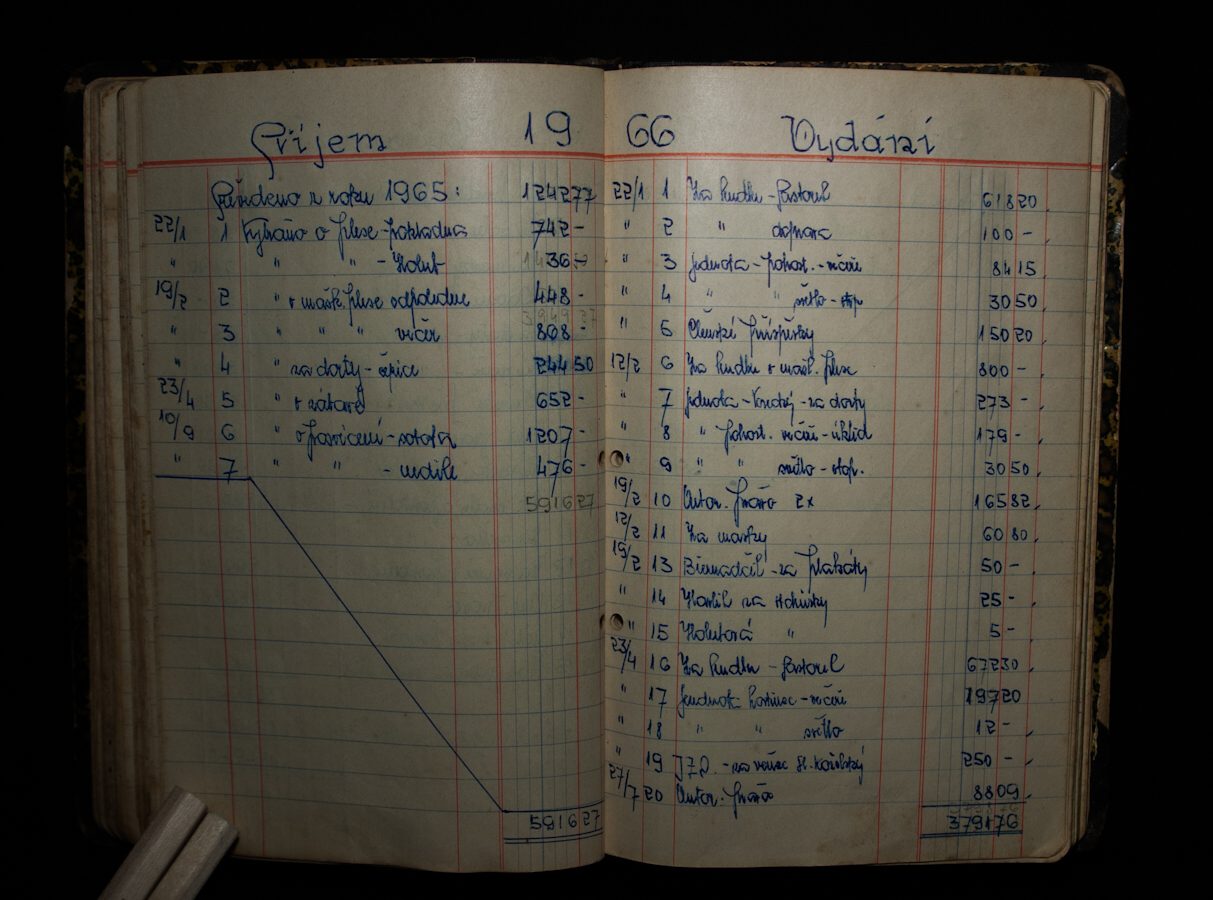 Příjem 19
Převedeno z roku 1965: 124277
22/1 1 Vybráno o plese - pokladna 742 -
" " " - Holub 36 -
19/2 2 " v mašk. plese odpoledne 448 -
" 3 " " " večer 808 -
" 4 " za dorty - špice 244 50
23/4 5 " v zábavě 652 -
10/9 6 " o posvícení - sobota 1207 -
" 7 " " - neděle 476 -
591627
591627
66 Vydání
22/1 1 Za hudbu - 618 20
" 2 " doprava 100 -
" 3 Jednota - pohost. - večeře 84 15
" 4 " " světlo - 30 50
" 5 Členské příspěvky 150 20
12/2 6 Za hudbu v mašk. plese 800 -
" 7 Jednota - - za dorty 273 -
" 8 " pohost. večeře - úklid 179 -
" 9 " " světlo - top. 30 50
19/2 10 Autor. práva 2x 165 82
12/2 11 Za masky 60 80
19/2 13 - za plakáty 50 -
" 14 za 25 -
" 15 Holubová " 5 -
23/4 16 Za hudbu - 672 30
" 17 Jednota - večeře 197 20
" 18 " " světlo 12 -
" 19 JZD - za 250 -
27/7 20 Autor. práva 88 09
379176